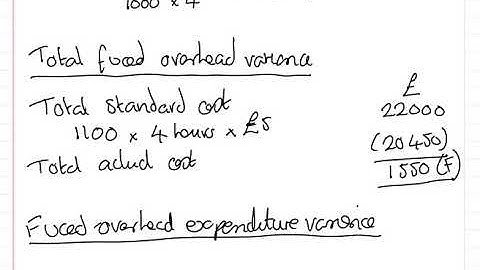 1000 x 4
Total fixed overhead variance
£
Total standard cost 22000
1100 x 4 hours x £5
(20450)
Total actual cost 1550 (F)
Fixed overhead expenditure variance